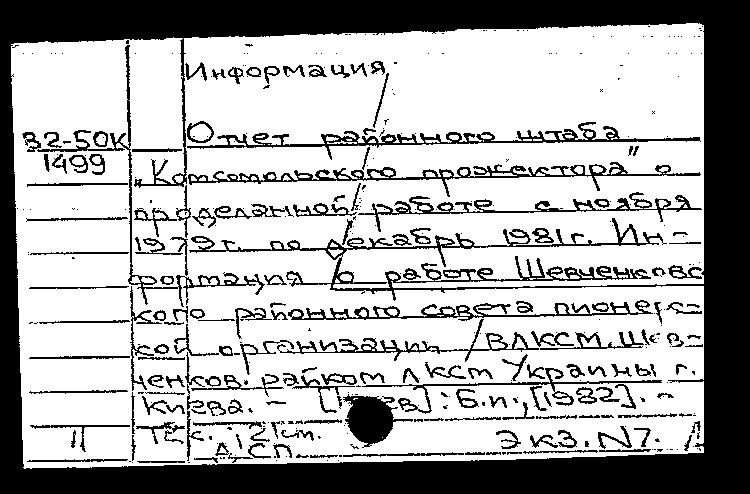 Информация
В2-50к
1499
Отчет районного штаба
"Комсомольского прожектора" о
проделанной работе с ноября
1979г. по декабрь 1981г. Ин-
формация о работе Шевченковс
кого районного совета пионерс-
кой организации / ВЛКСМ. Шев-
ченков. райком ЛКСМ Украины г.
Киева. - [Киев]: Б.и., [1982]. -
11
21 см.
ДСП.
Экз. N7.